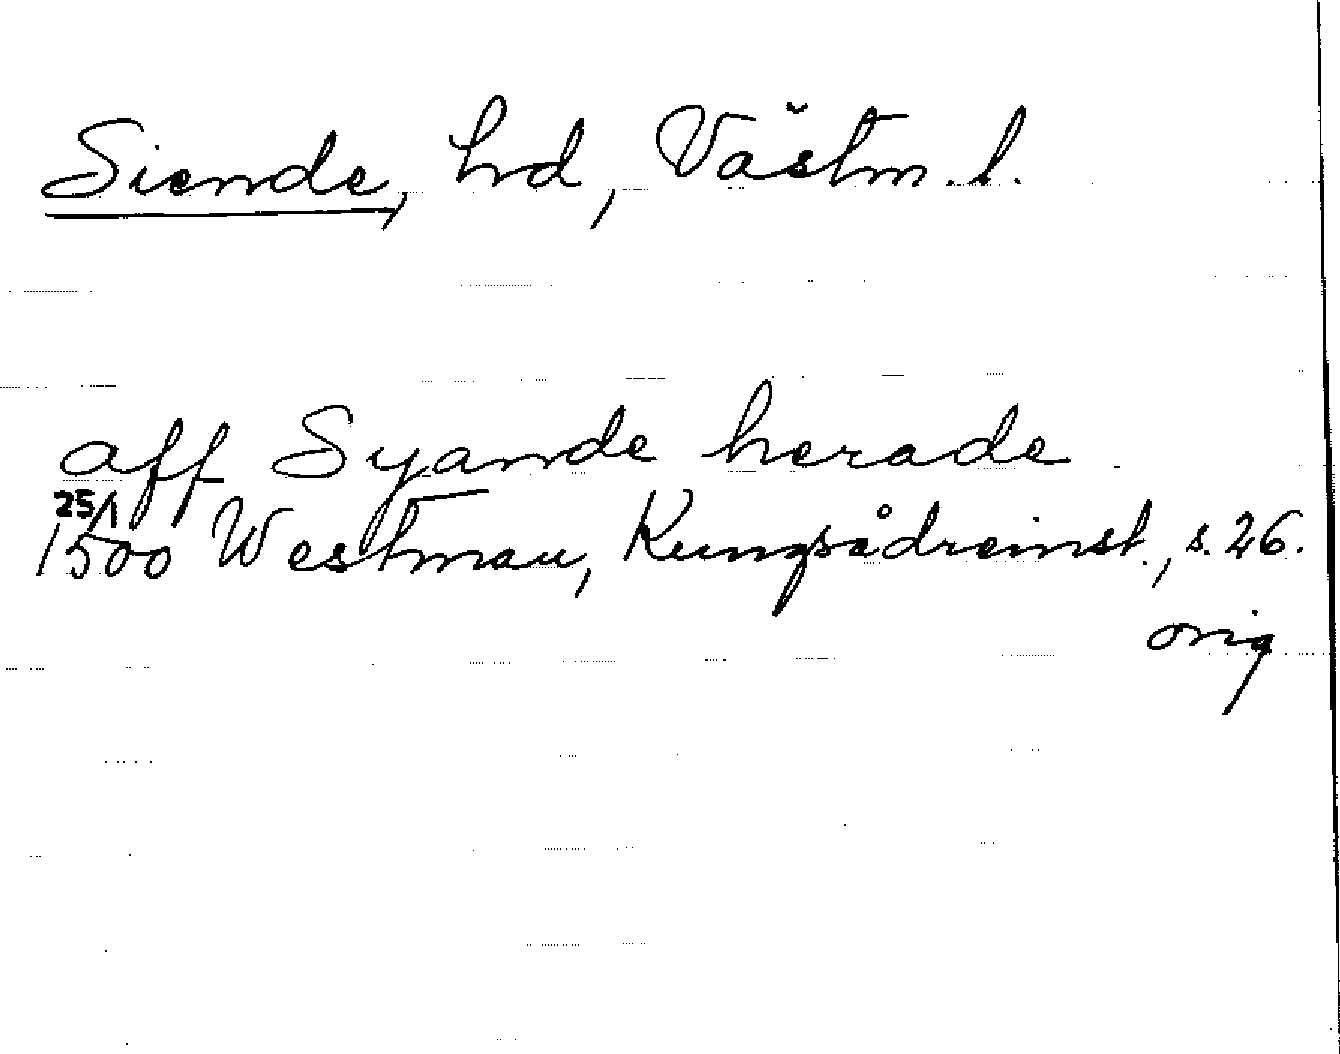 Siende, hd, Västm. l.
aff Syande herade
25/1
1500 Westman, Kungsådreinst., s. 26.
orig